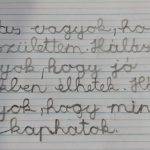 ás vagyok, ho
születtem. Hálás
yok, hogy jó
ben élhetek. H
yok, hogy min
kaphatok.